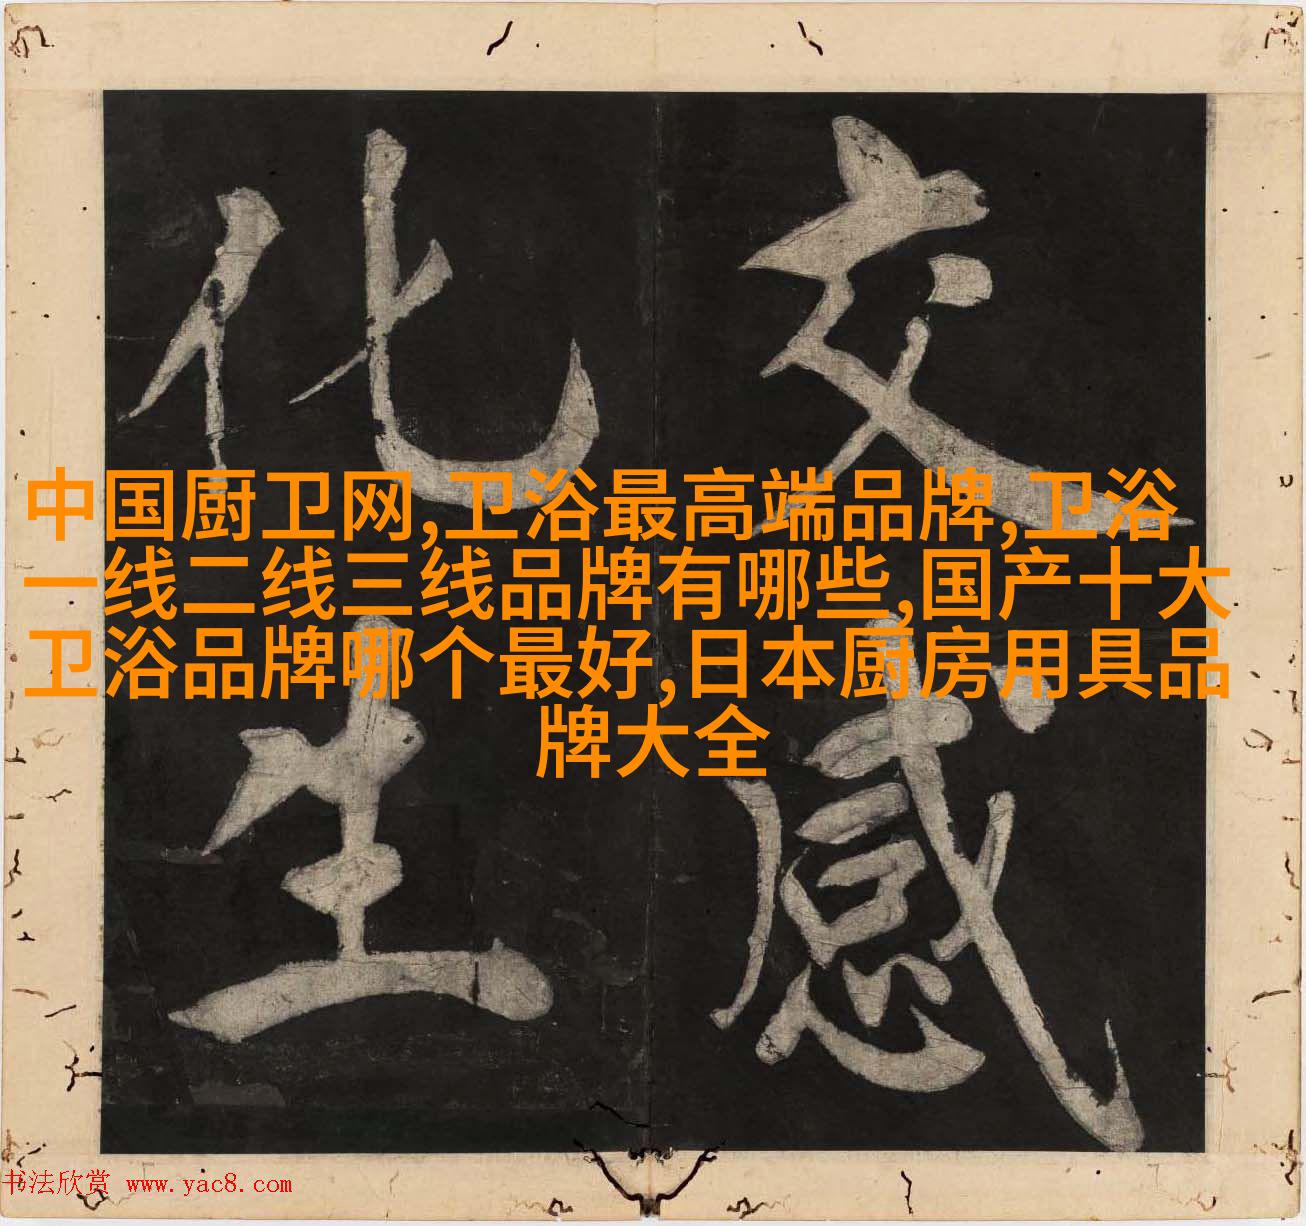 交感
化生
中国厨卫网,卫浴最高端品牌,卫浴
一线二线三线品牌有哪些,国产十大
卫浴品牌哪个最好,日本厨房用具品
牌大全
书法欣赏 www.yac8.com